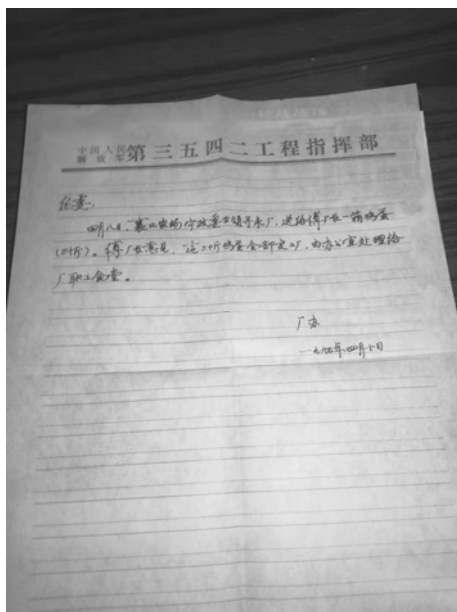 中国人民解放军第三五四二工程指挥部
纪委:
四月八日,塞北农场宁政委等领导来厂,送给傅厂长一箱鸡蛋
(二十斤)。傅厂长意见,这二十斤鸡蛋全部交工厂,由办公室处理给
厂职工食堂。
厂办
一九八五年四月